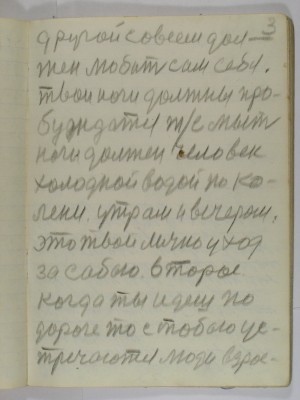 3
другой совсем дол-
жен любить сам себя.
твои ноги должны про-
буждатся т/е мыть
ноги должен человек
холодной водой по ко-
лени, утрам и вечером,
это твой лично уход
за сабою. второе.
когда ты идеш по
дороге то с тобою ус-
тречаются люди взрос-